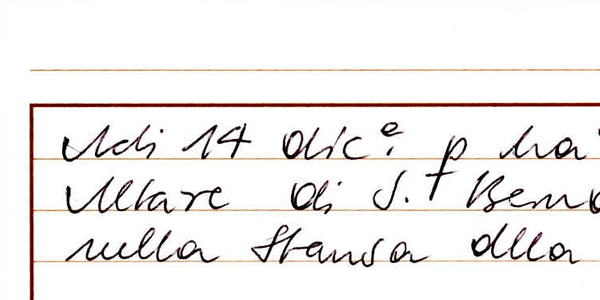 Adi 14 dic.e p ha
Altare di S.t Bern
nella stansa dlla